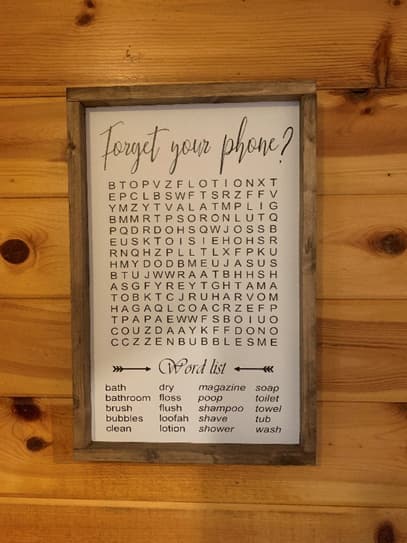 Forget your phone?
BTOPVZFLOTIONXT
EPCLBSWFTSRZFFV
YMZYTVALATMPLIG
BMMRTPSORONLUTQ
PQDRDOHSQWJOSSB
EUSKTOISIEHOHSR
RNQHZPLLTLXFPKU
HMYDODBMEUJASUS
BTUJWWRAATBHHSH
ASGFYREYTGHTAMA
TOBKTCJRUHARVOM
HAGAQLCOACRZEFP
TPAPAEWWFSBOIUO
COUZDAAYKFFDONO
CCZZENBUBBLESME
Word list
bath dry magazine soap
bathroom floss poop toilet
brush flush shampoo towel
bubbles loofah shave tub
clean lotion shower wash